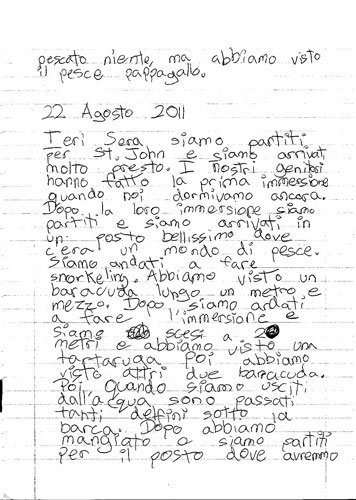 pescato niente, ma abbiamo visto
il pesce pappagallo.
22 Agosto 2011
Ieri Sera siamo partiti
per St. John e siamo arrivati
molto presto. I nostri genitori
hanno fatto la prima immersione
quando noi dormivamo ancora.
Dopo la loro immersione siamo
partiti e siamo arrivati in
un posto bellissimo dove
c'era un mondo di pesce.
Siamo andati a fare
snorkeling. Abbiamo visto un
baracuda lungo un metro e
mezzo. Dopo siamo andati
a fare l'immersione e
siamo scesi a 20
metri e abbiamo visto una
tartaruga Poi abbiamo
visto altri due baracuda.
Poi quando siamo usciti
dall'acqua sono passati
tanti delfini sotto la
barca. Dopo abbiamo
mangiato e siamo partiti
per il posto dove avremmo